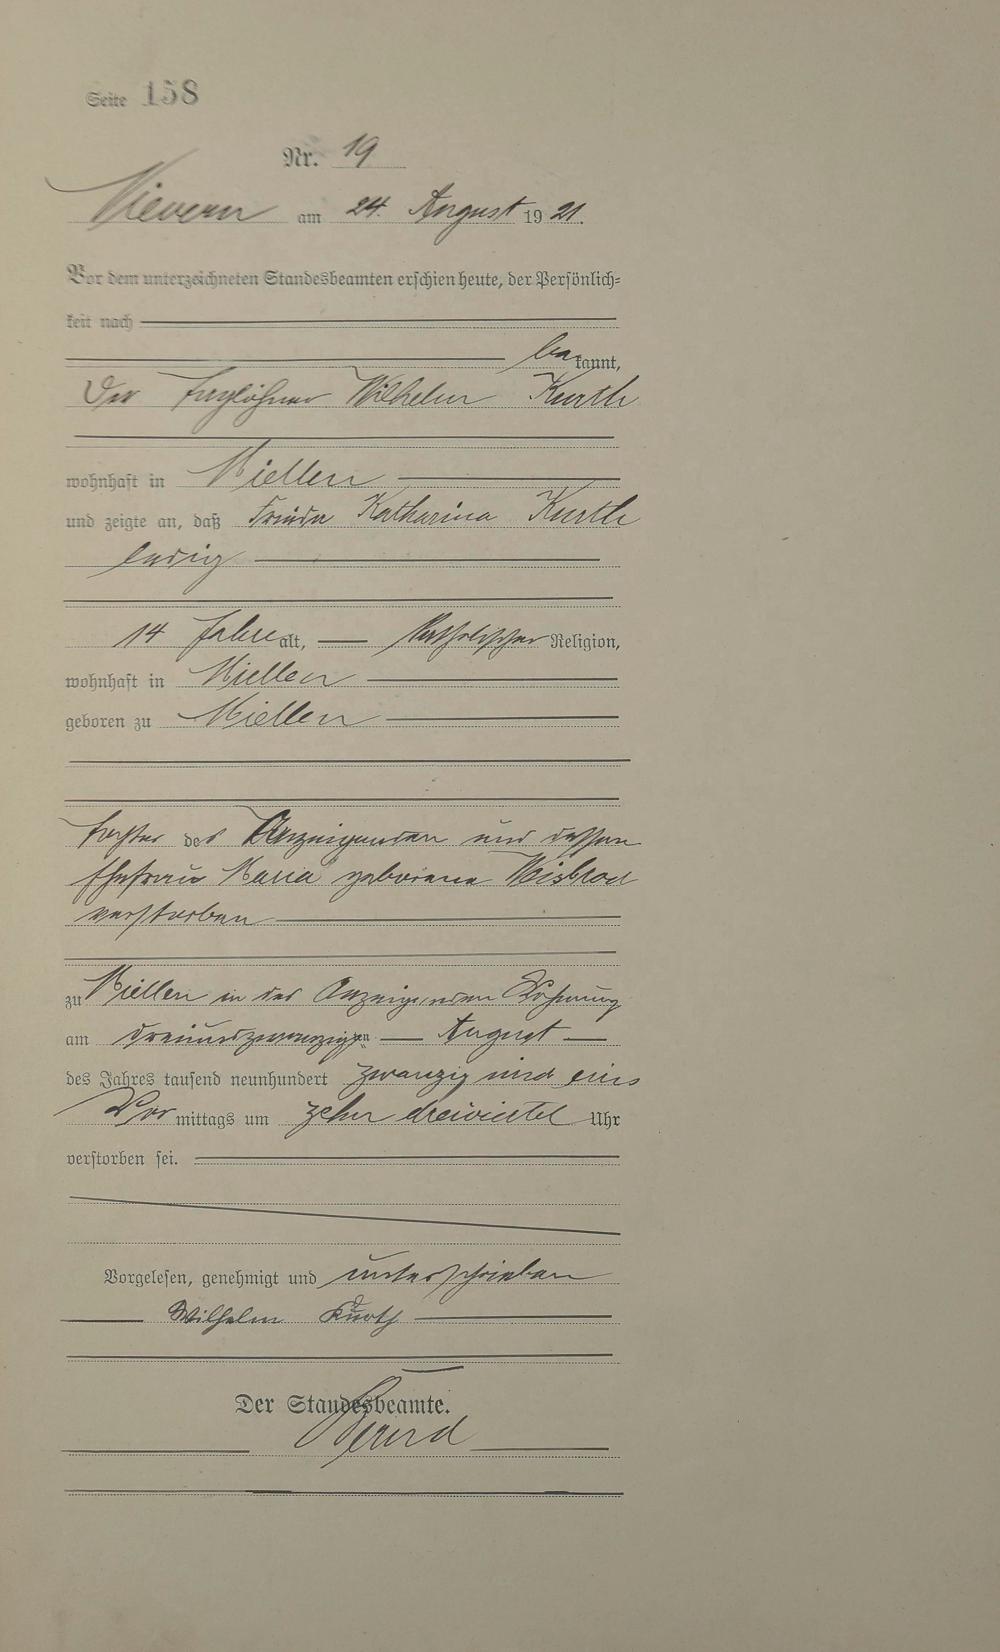 Seite 158
Nr. 19
Nievern am 24. August 1921.
Vor dem unterzeichneten Standesbeamten erschien heute, der Persönlich=
keit nach
be kannt,
Der Taglöhner Wilhelm Kurth
wohnhaft in Miellen
und zeigte an, daß Frieda Katharina Kurth
ledig
14 Jahre alt, katholischer Religion,
wohnhaft in Miellen
geboren zu Miellen
Tochter des Anzeigenden und dessen
Ehefrau Maria geborene
verstorben
zu Miellen in der Anzeigenden Wohnung
am dreiundzwanzigsten August
des Jahres tausend neunhundert zwanzig und eins
Vor mittags um zehn dreiviertel Uhr
verstorben sei.
Vorgelesen, genehmigt und unterschrieben
Wilhelm Kurth
Der Standesbeamte.